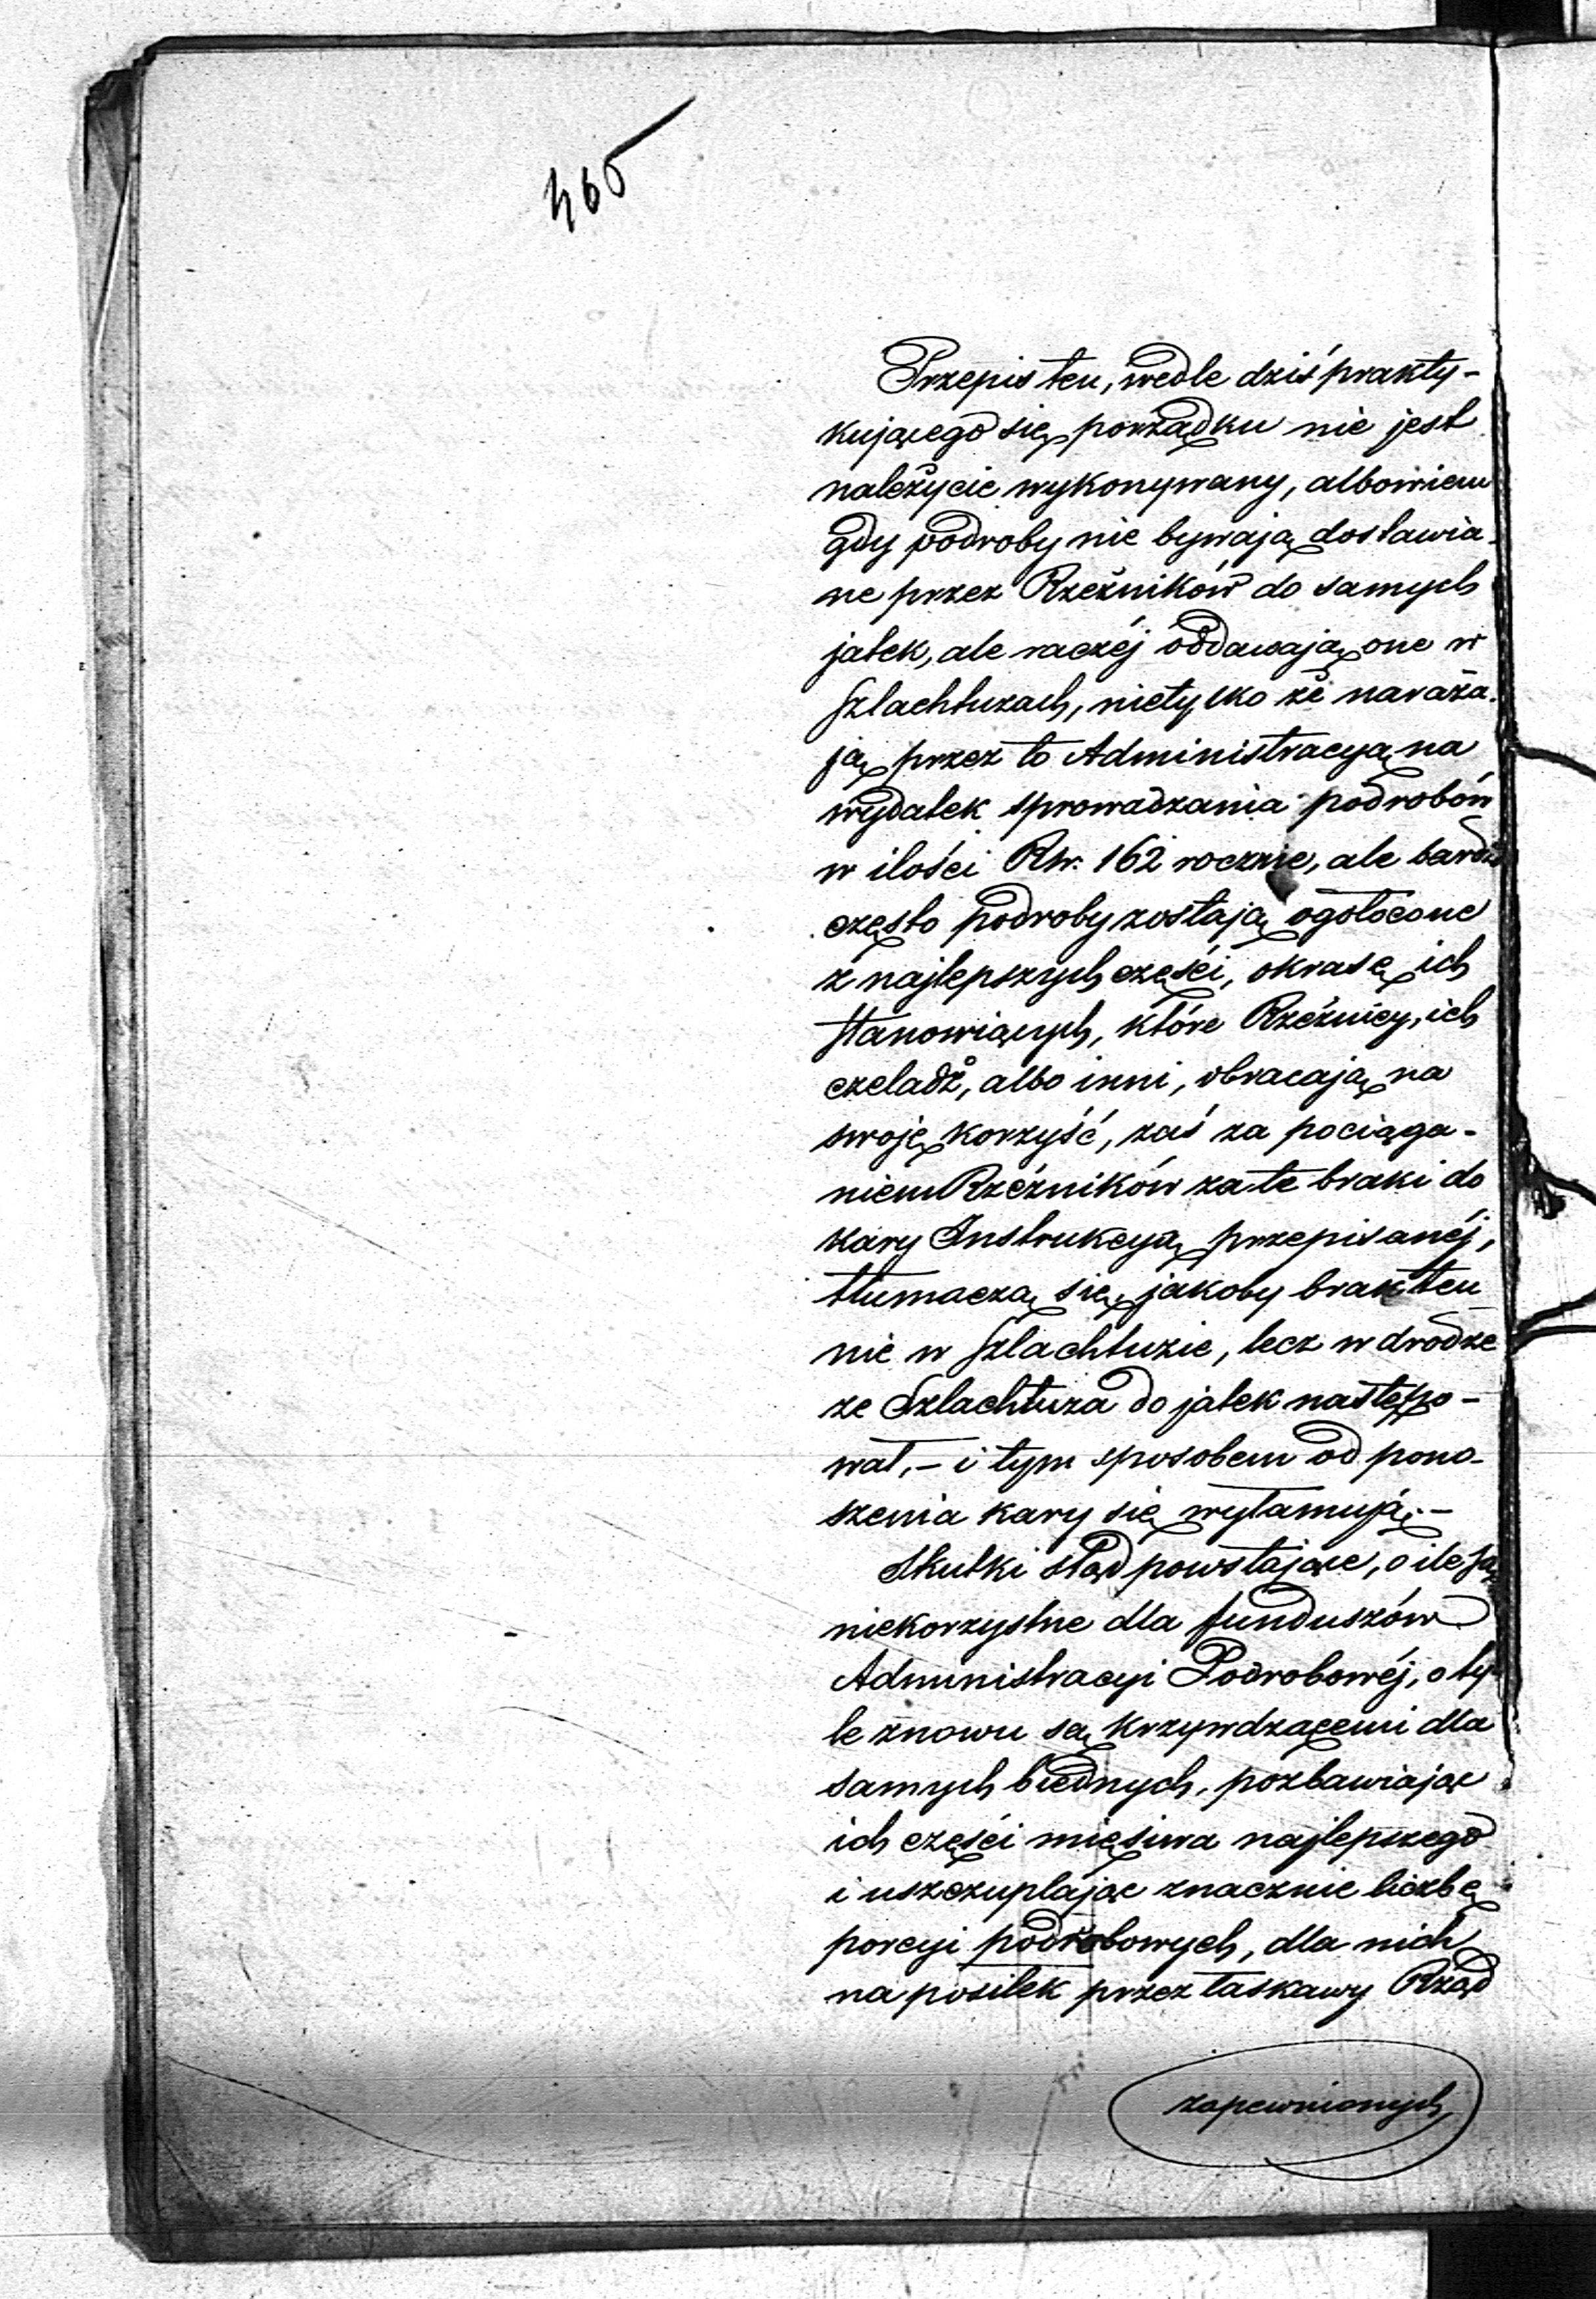 465
Przepis ten, wedle dziś prakty-
kującego się porządku nie jest
należycie wykonywany, albowiem
gdy podroby nie bywają dostawia-
ne przez Rzeźników do samych
jatek, ale raczéj oddawają one w
Szlachtuzach, nietylko że naraża-
ją przez to Administracyą na
wydatek sprowadzania podrobów
w ilości Rsr. 162 rocznie, ale bardzo
często podroby zostają ogołocone
z najlepszych części, okrasę ich
stanowiących, które Rzeźnicy, ich
czeladź, albo inni, obracają na
swoję korzyść, zaś za pociąga-
niem Rzeźników za te braki do
kary Instrukcyą przepisanéj,
tłumaczą się, jakoby brak ten
nie w Szlachtuzie, lecz w drodze
ze Szlachtuza do jatek następo-
wał, – i tym sposobem od pono-
szenia kary się wyłamują. –
Skutki stąd powstające, o ile są
niekorzystne dla funduszów
Administracyi Podrobowéj, o ty-
le znowu są krzywdzącemi dla
samych biednych, pozbawiając
ich części mięsiwa najlepszego
i uszczuplając znacznie liczbę
porcyi podrobowych, dla nich
na posiłek przez łaskawy Rząd
zapewnionych